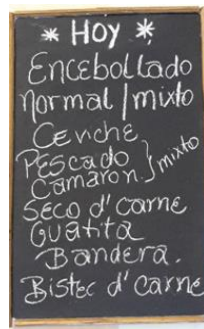 * Hoy *
Encebollado
Normal / mixto
Ceviche
Pescado } mixto
Camaron.
Seco d' carne
Guatita
Bandera.
Bistec d' carne